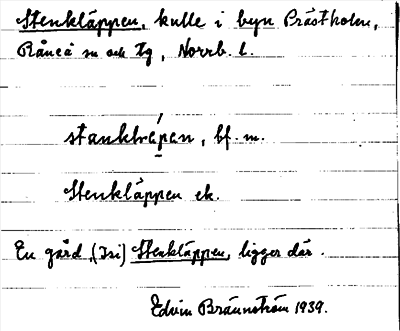 Stenkläppen, kulle i byn Prästholm,
Råneå sn och tg, Norrb. l.
stanklrepen, bf. m.
Stenkläppen ek.
En gård, (Isi) Stenkläppen, ligger där.
Edvin Brännström 1939.